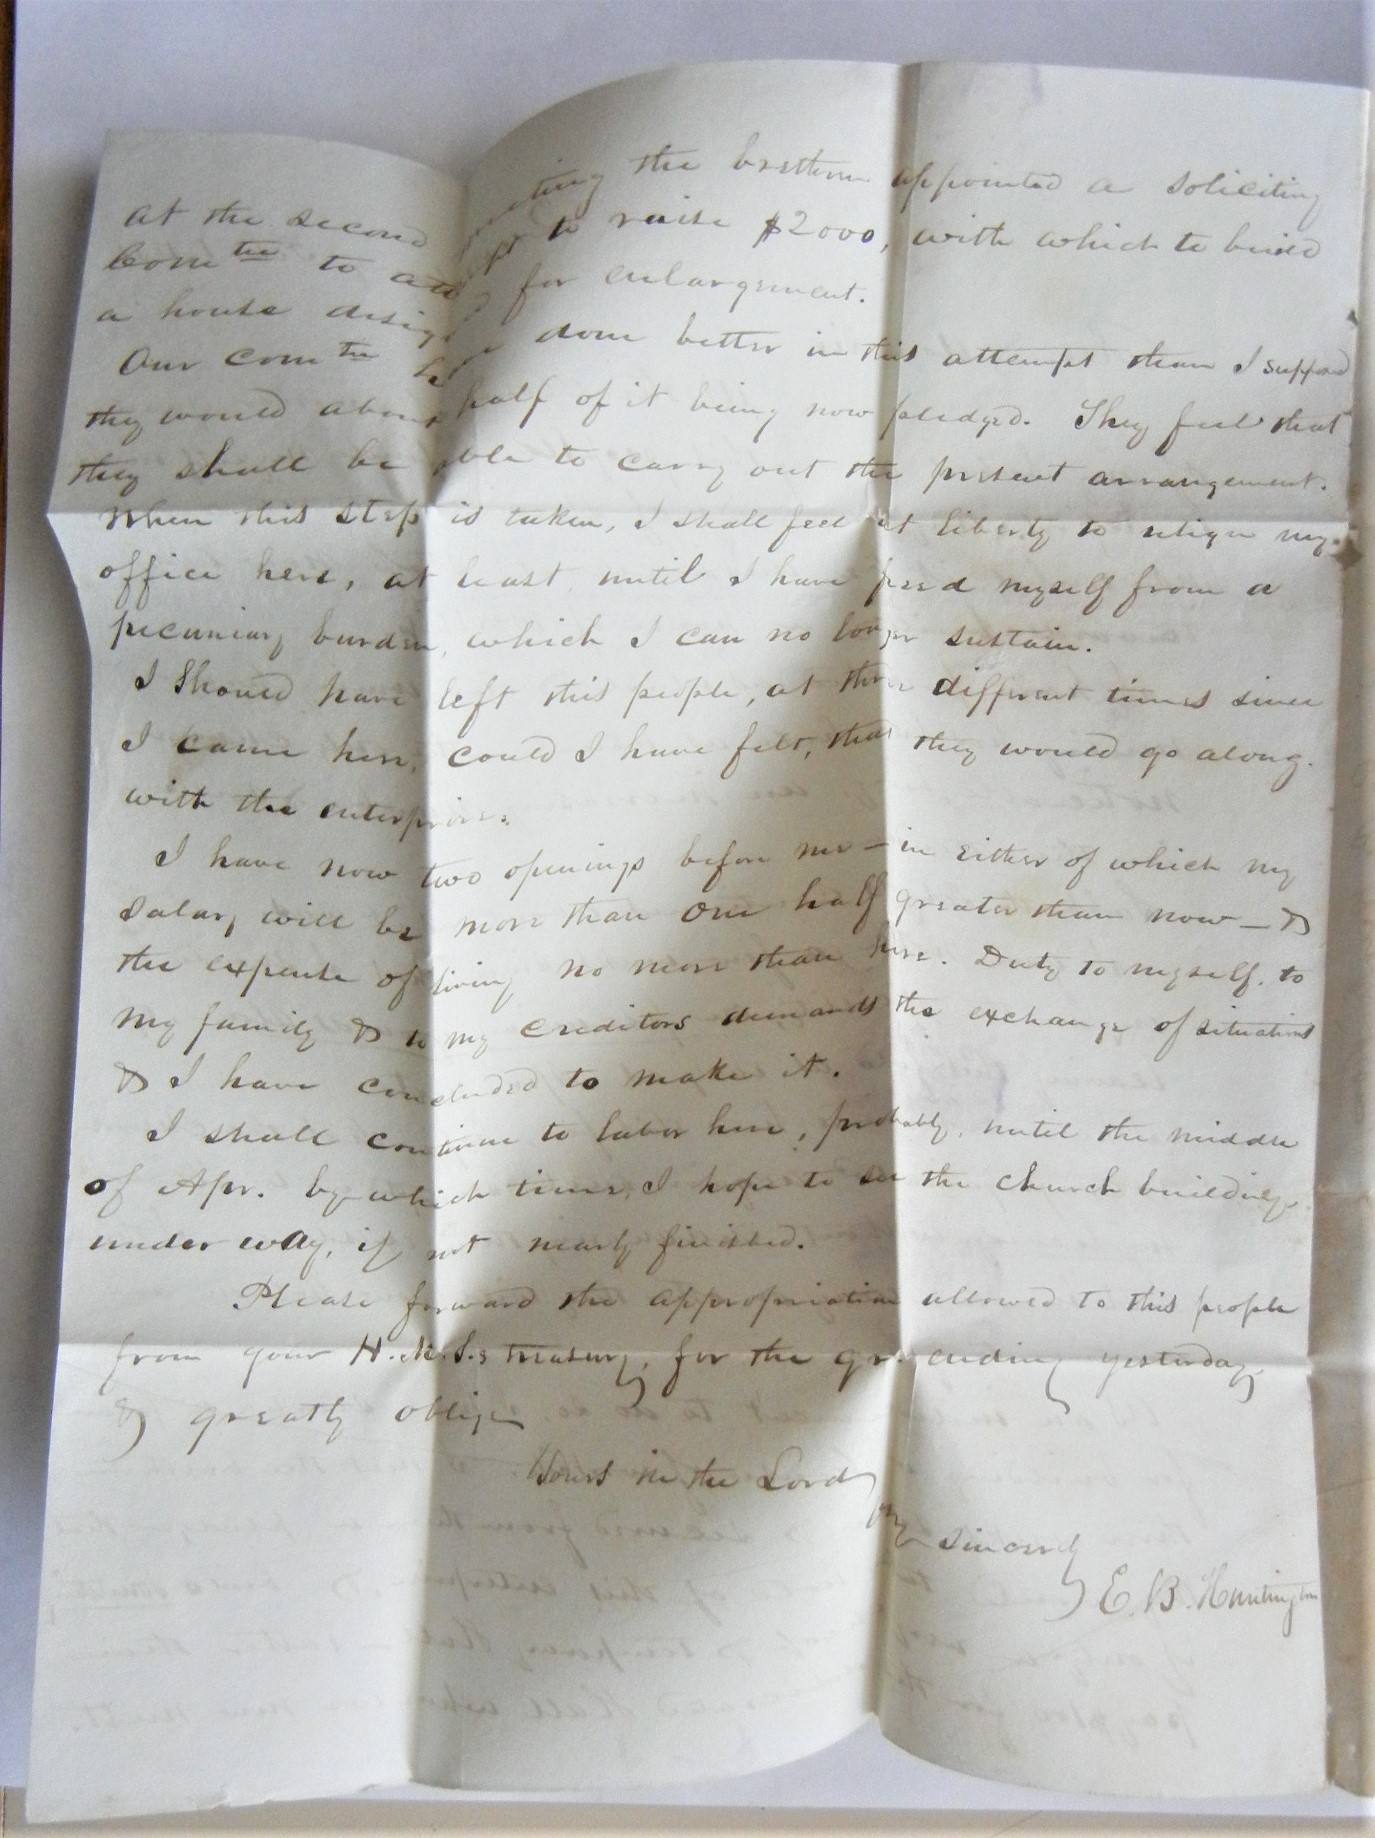 at the second meeting the brethren appointed a soliciting
Com^tee to attempt to raise $2000, with which to build
a house designed for enlargement.
Our com^tee have done better in this attempt than I supposed
they would about half of it being now pledged. They feel that
they shall be able to carry out the present arrangement.
When this step is taken, I shall feel at liberty to resign my
office here, at least until I have freed myself from a
pecuniary burden, which I can no longer sustain.
I should have left this people, at three different times since
I came here, could I have felt, that they would go along
with the enterprise.
I have now two openings before me – in either of which my
salary will be more than one half greater than now – &
the expense of living no more than here. Duty to myself, to
my family & to my creditors demands the exchange of situations
& I have concluded to make it.
I shall continue to labor here, probably, until the middle
of Apr. by which time, I hope to see the church building
under way, if not nearly finished.
Please forward the appropriation allowed to this people
from your H.M.S.s treasury, for the yr. ending yesterday,
& greatly oblige
Yours in the Lord
sincerely
E. B. Huntington